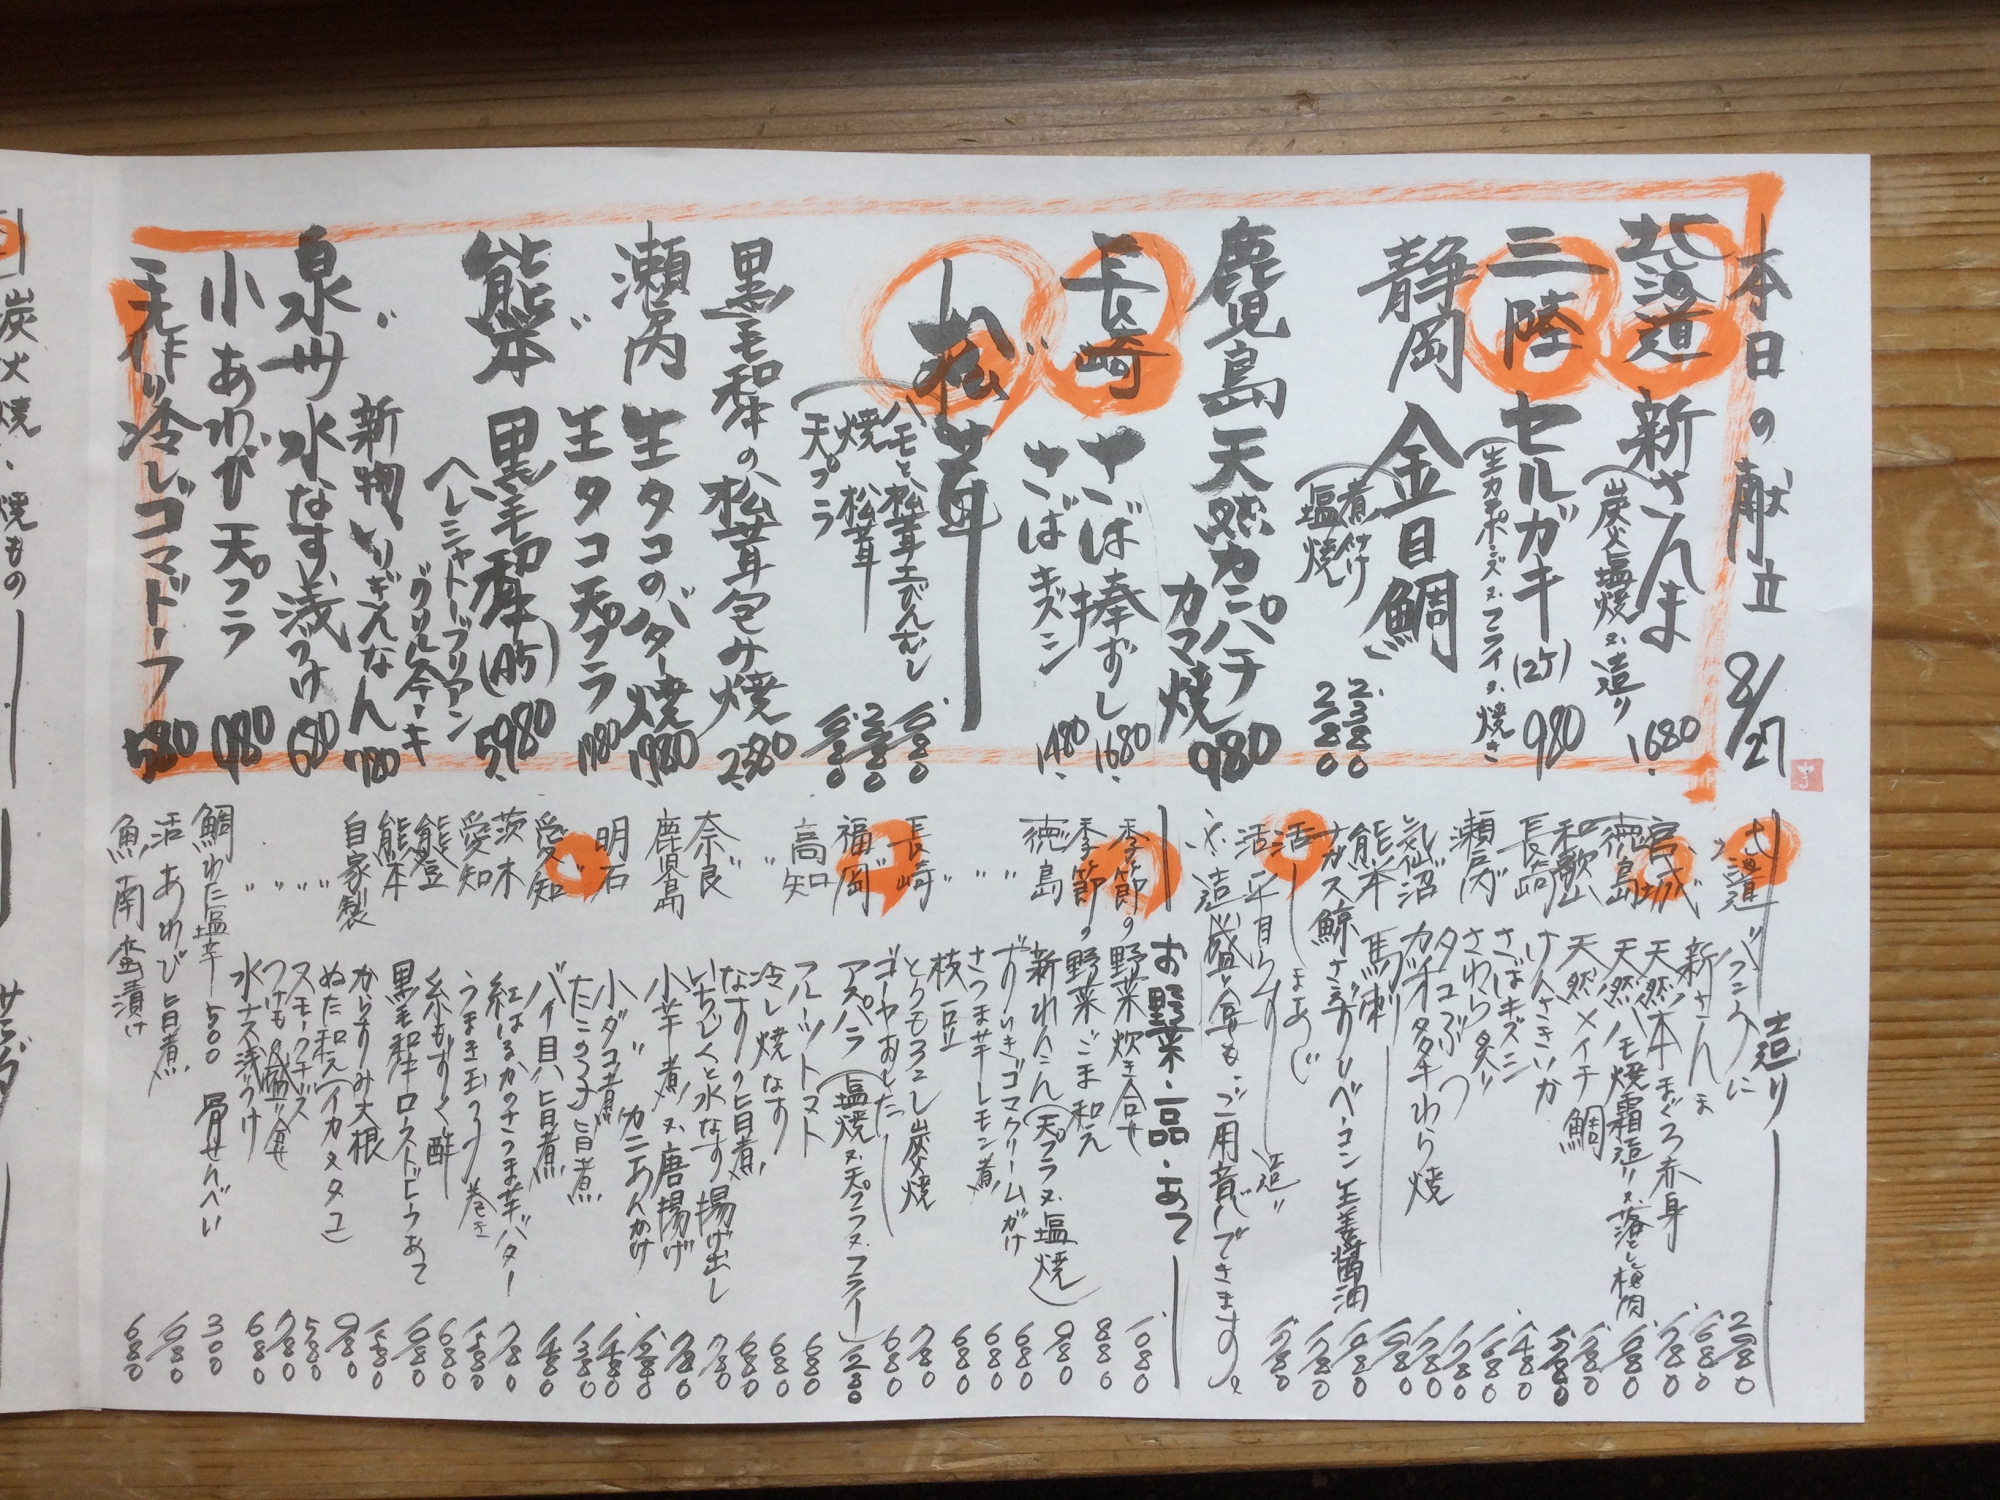 本日の献立 8/27
北海道 新さんま 1680
(炭火塩焼又造り
三陸 セルガキ(2ケ) 980
(生カキポンズ又フライ又焼き
静岡 金目鯛
(煮付け 2380
塩焼 2180
鹿児島 天然カンパチ
カマ焼 980
長崎 さば棒ずし 1680
〃 さばキズシ 1480
松茸
(ハモと松茸土びんむし 1680
焼松茸
天プラ
黒毛和牛の松茸包み焼 2580
瀬戸内 生タコのバター焼 1980
〃 生タコ天プラ 1780
熊本 黒毛和牛(A5) 5980
ヘレシャトーブリアン
グリルステーキ
〃 新物ぎんなん 780
泉州 水なす浅づけ 680
小あわび天プラ 980
手作り冷しゴマドーフ 580
造り
北海道 バフンウニ
新さんま 1680
宮城 天然本まぐろ赤身 1780
徳島 天然ハモ焼霜造り又落とし梅肉
和歌山 天然メイチ鯛
長崎 けんさきいか
さばキズシ 1480
瀬戸内 さわら炙り 1680
タコぶつ
気仙沼 カツオタタキわら焼
熊本 馬刺
ナガス鯨さえずりベーコン生姜醤油
活しまあじ
活平目うす 造り
造り盛り合せもご用意できます。
お野菜・一品・あて
季節の野菜炊き合せ 1080
季節の野菜ごま和え 880
徳島 新れんこん(天プラ又塩焼) 980
〃 ずいきゴマクリームがけ 680
〃 さつま芋レモン煮 680
枝豆 680
長崎 とうもろこし炭火焼 780
〃 ゴーヤおひたし 680
福岡 アスパラ(塩焼又天プラ又フライ) 1280
高知 フルーツトマト 680
〃 冷し焼なす 680
なすの旨煮 680
奈良 いちじくと水なす揚げ出し 780
鹿児島 小芋煮又唐揚げ 780
〃 カニあんかけ
明石 小ダコ煮 1480
たこの子旨煮 1380
愛知 バイ貝旨煮 1480
茨木 紅はるかのさつま芋バター 780
愛知 うまき玉子巻き
能登 糸もずく酢 680
熊本 黒毛和牛ローストビーフあて
自家製 からすみ大根
ぬた和え(イカ又タコ) 980
〃 スモークチーズ 580
〃 つけもの盛り合せ 780
〃 水ナス浅づけ 680
鯛わた塩辛 500 骨せんべい 300
活あわび旨煮
魚南蛮漬け 680
炭火焼・焼もの
サラダ